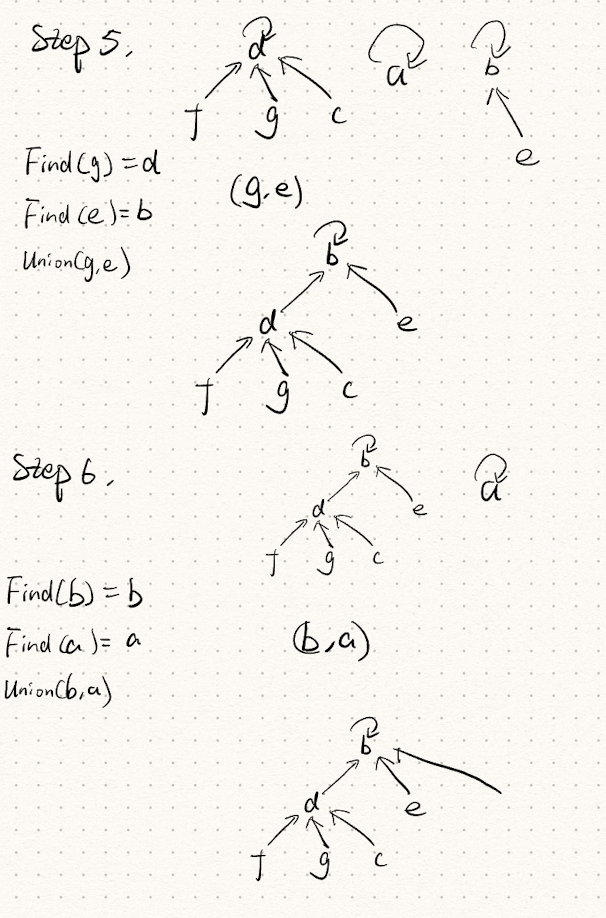 Step 5,
d a b
f g c
e
Find(g) = d
Find(e) = b
(g,e)
Union(g,e)
b
d e
f g c
Step 6,
b a
d e
f g c
Find(b) = b
Find(a) = a
(b,a)
Union(b,a)
b
d e
f g c